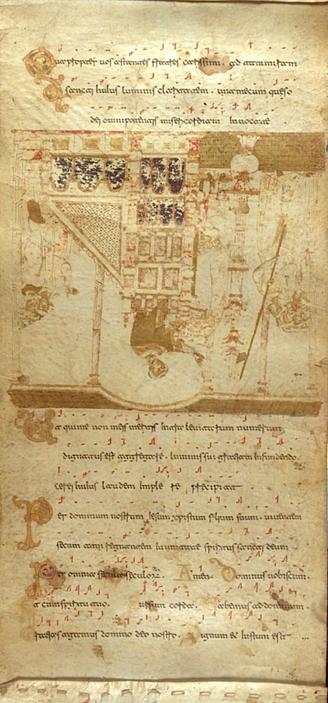 Quapropter uos astantes fratres carissimi. ad tam miram
sancti huius luminis claritatem. una mecum queso
dei omnipotentis misericordia inuocate.
Ut qui me non meis meritis leuitarum numerum
dignatus est aggregare. luminis sui gratiam infundendo
cerei huius laudem implere precipiat
Per dominum nostrum iesum xpistum filium suum. uiuentem
secum atque regnantem in unitate spiritus sancti deum
Per omnia secula seculorum. Amen. Dominus uobiscum.
Et cum spiritu tuo. Sursum corda. Habemus ad dominum
Gratias agamus domino deo nostro. Dignum et iustum est